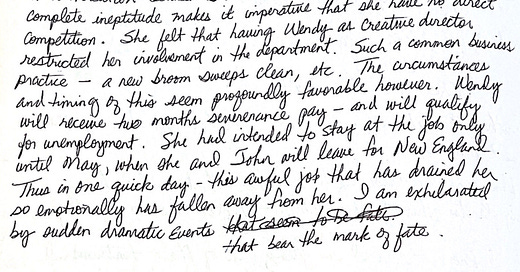 complete ineptitude makes it imperative that she have no direct
competition. She felt that having Wendy as Creative director
restricted her involvement in the department. Such a common business
practice – a new broom sweeps clean, etc. The circumstances
and timing of this seem profoundly favorable however. Wendy
will receive two months severence pay – and will qualify
for unemployment. She had intended to stay at the job only
until May, when she and John will leave for New England.
Thus in one quick day – this awful job that has drained her
so emotionally has fallen away from her. I am exhilarated
by sudden dramatic events that seem to be fate.
that bear the mark of fate.